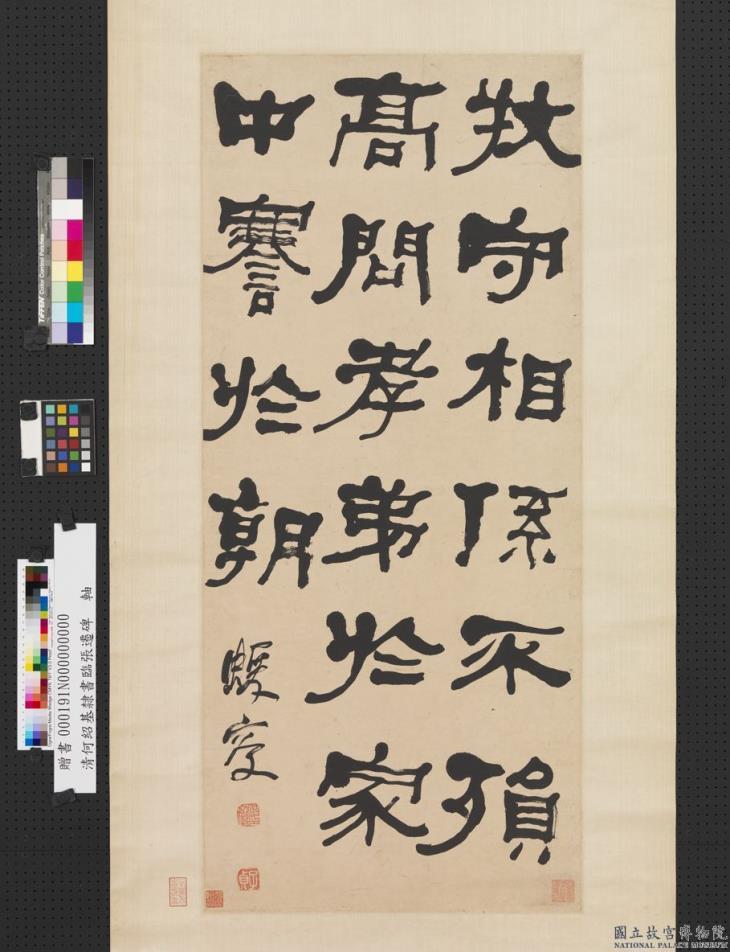 牧守相係不殞
高問孝弟於家
中謇於朝
蝯叟
贈書 000191N000000000
清何紹基隸書臨張遷碑 軸
國立故宮博物院
NATIONAL PALACE MUSEUM